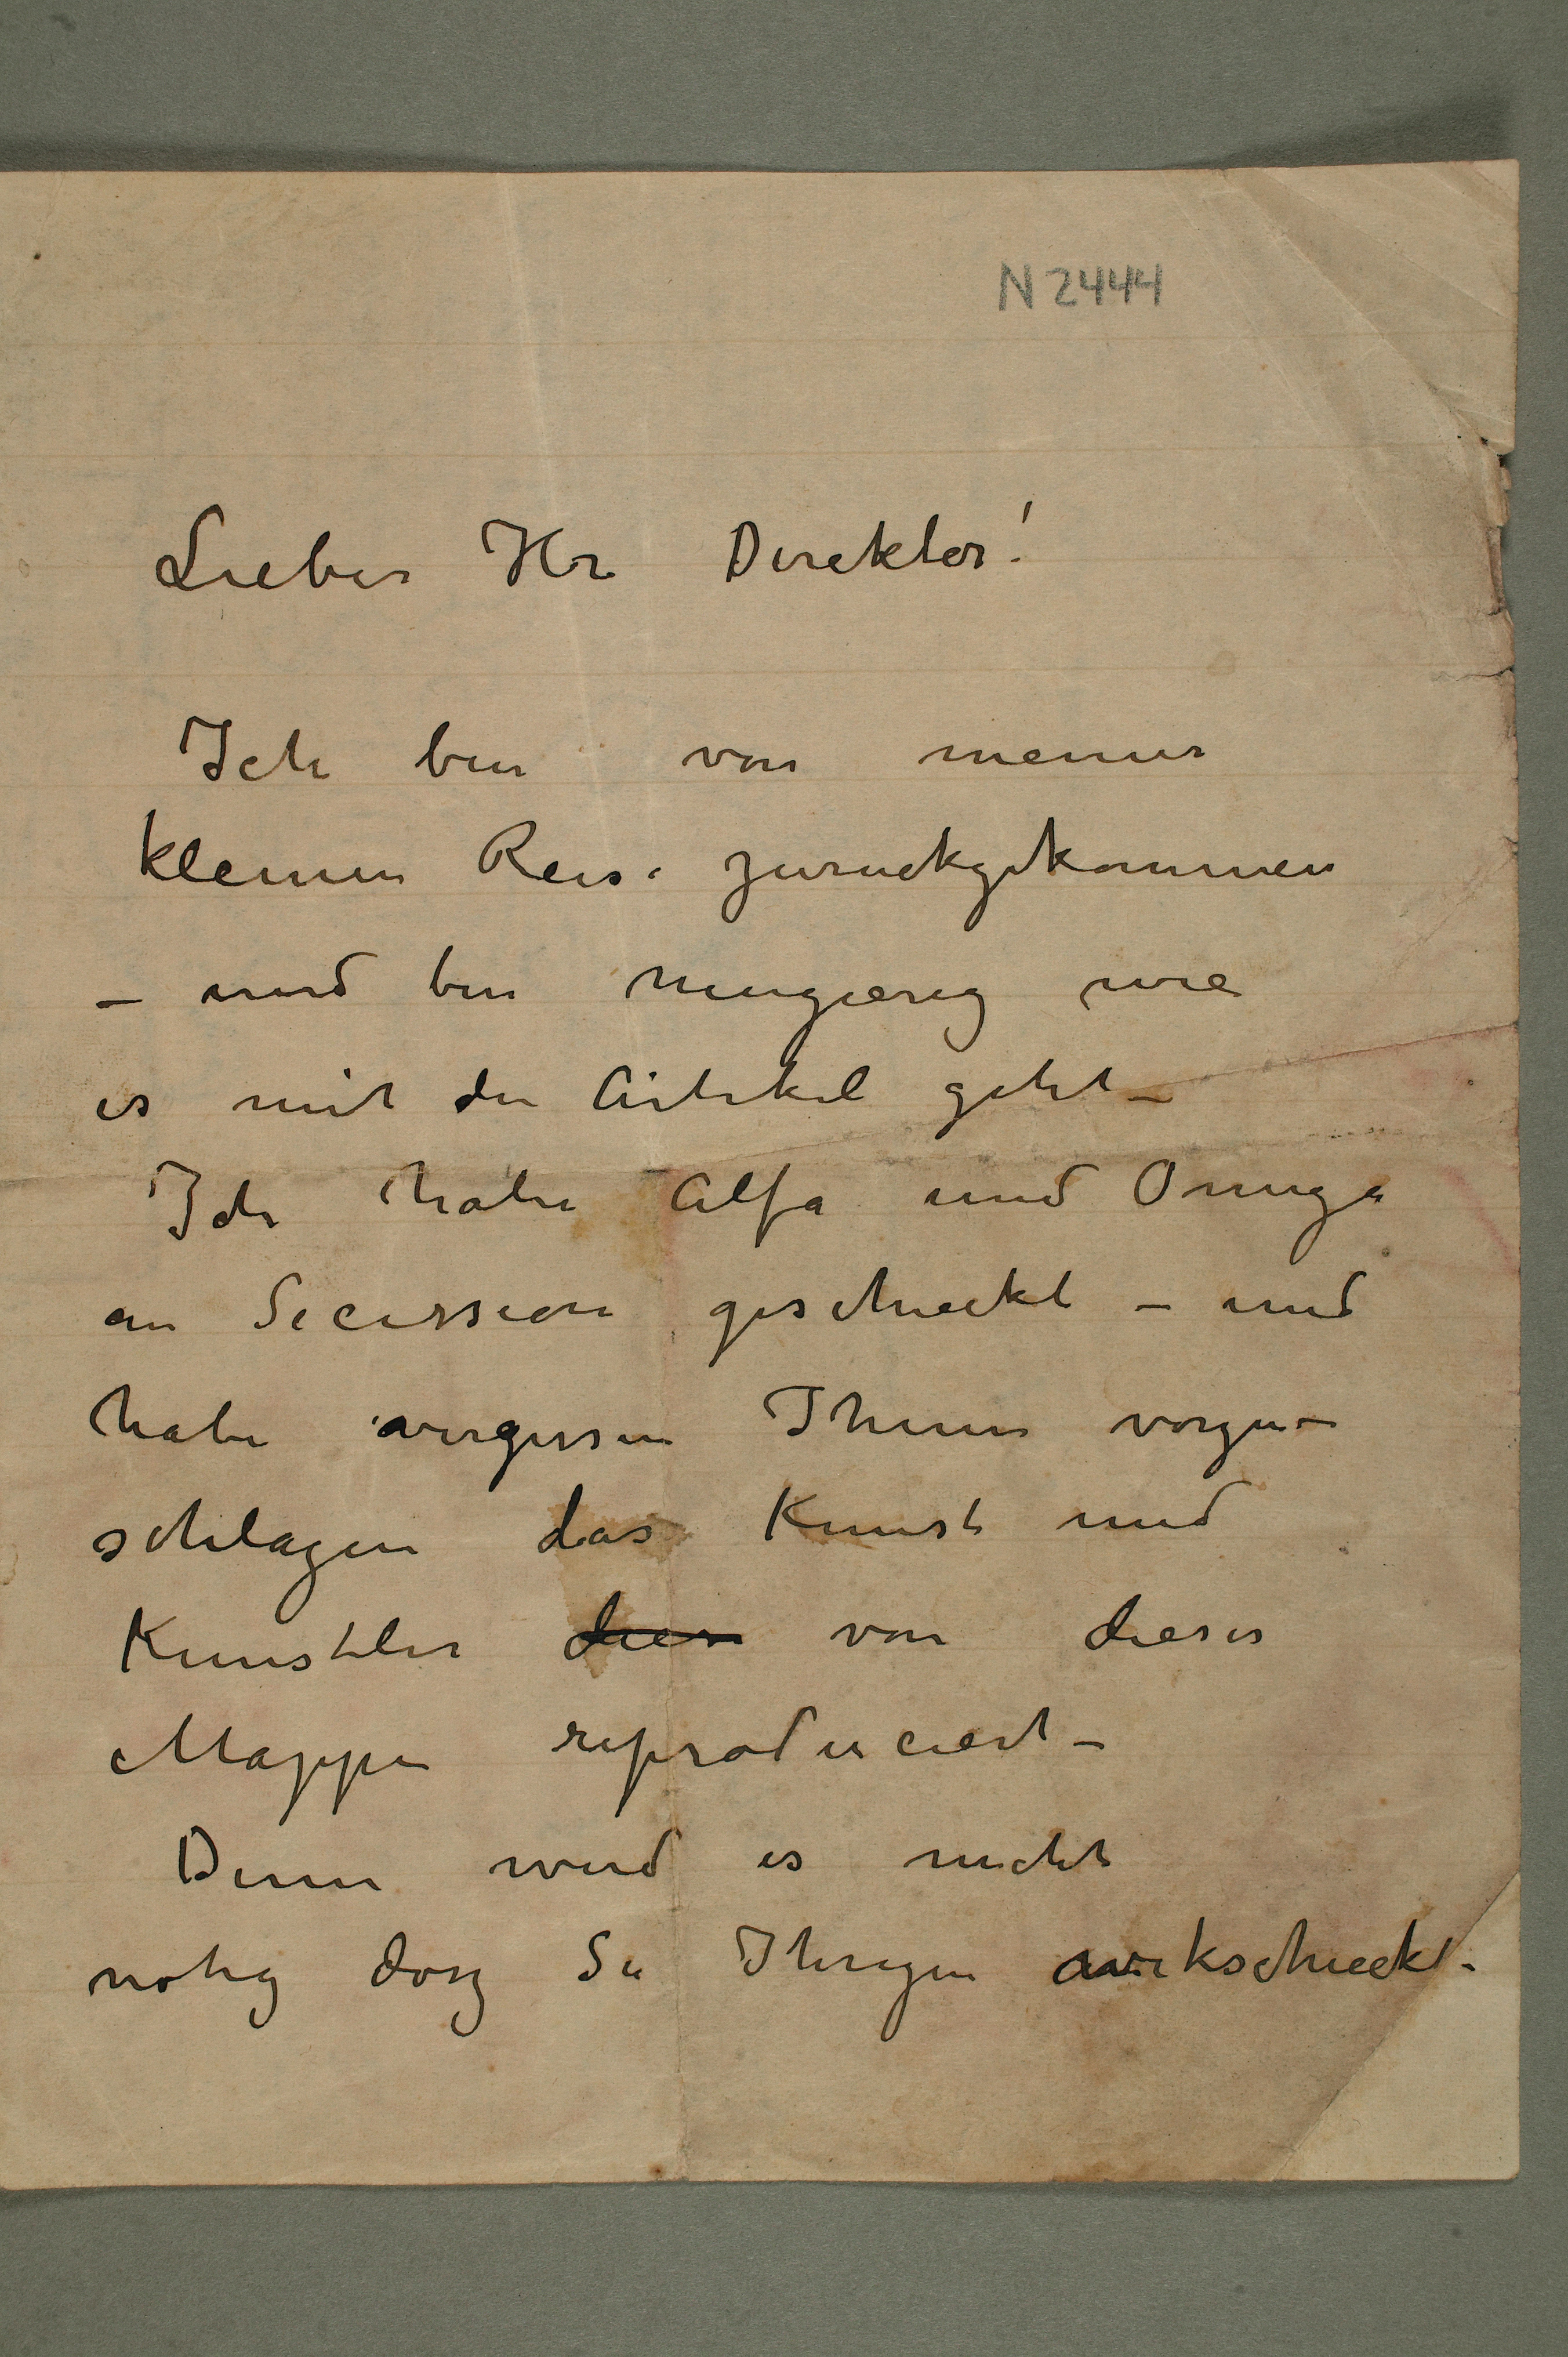 N 2444
Lieber Hr Direktor!
Ich bin von meiner
kleinen Reise zurückgekommen
– und bin neugierig wie
es mit der Artikel geht –
Ich habe Alfa und Omega
an Secession geschickt – und
habe vergessen Ihnen vorzu-
schlagen das Kunst und
Kunstler dies von dieser
Mappe reproduciert –
Denn wird es nicht
notig dasz Sie Ihrigen wekschickt.